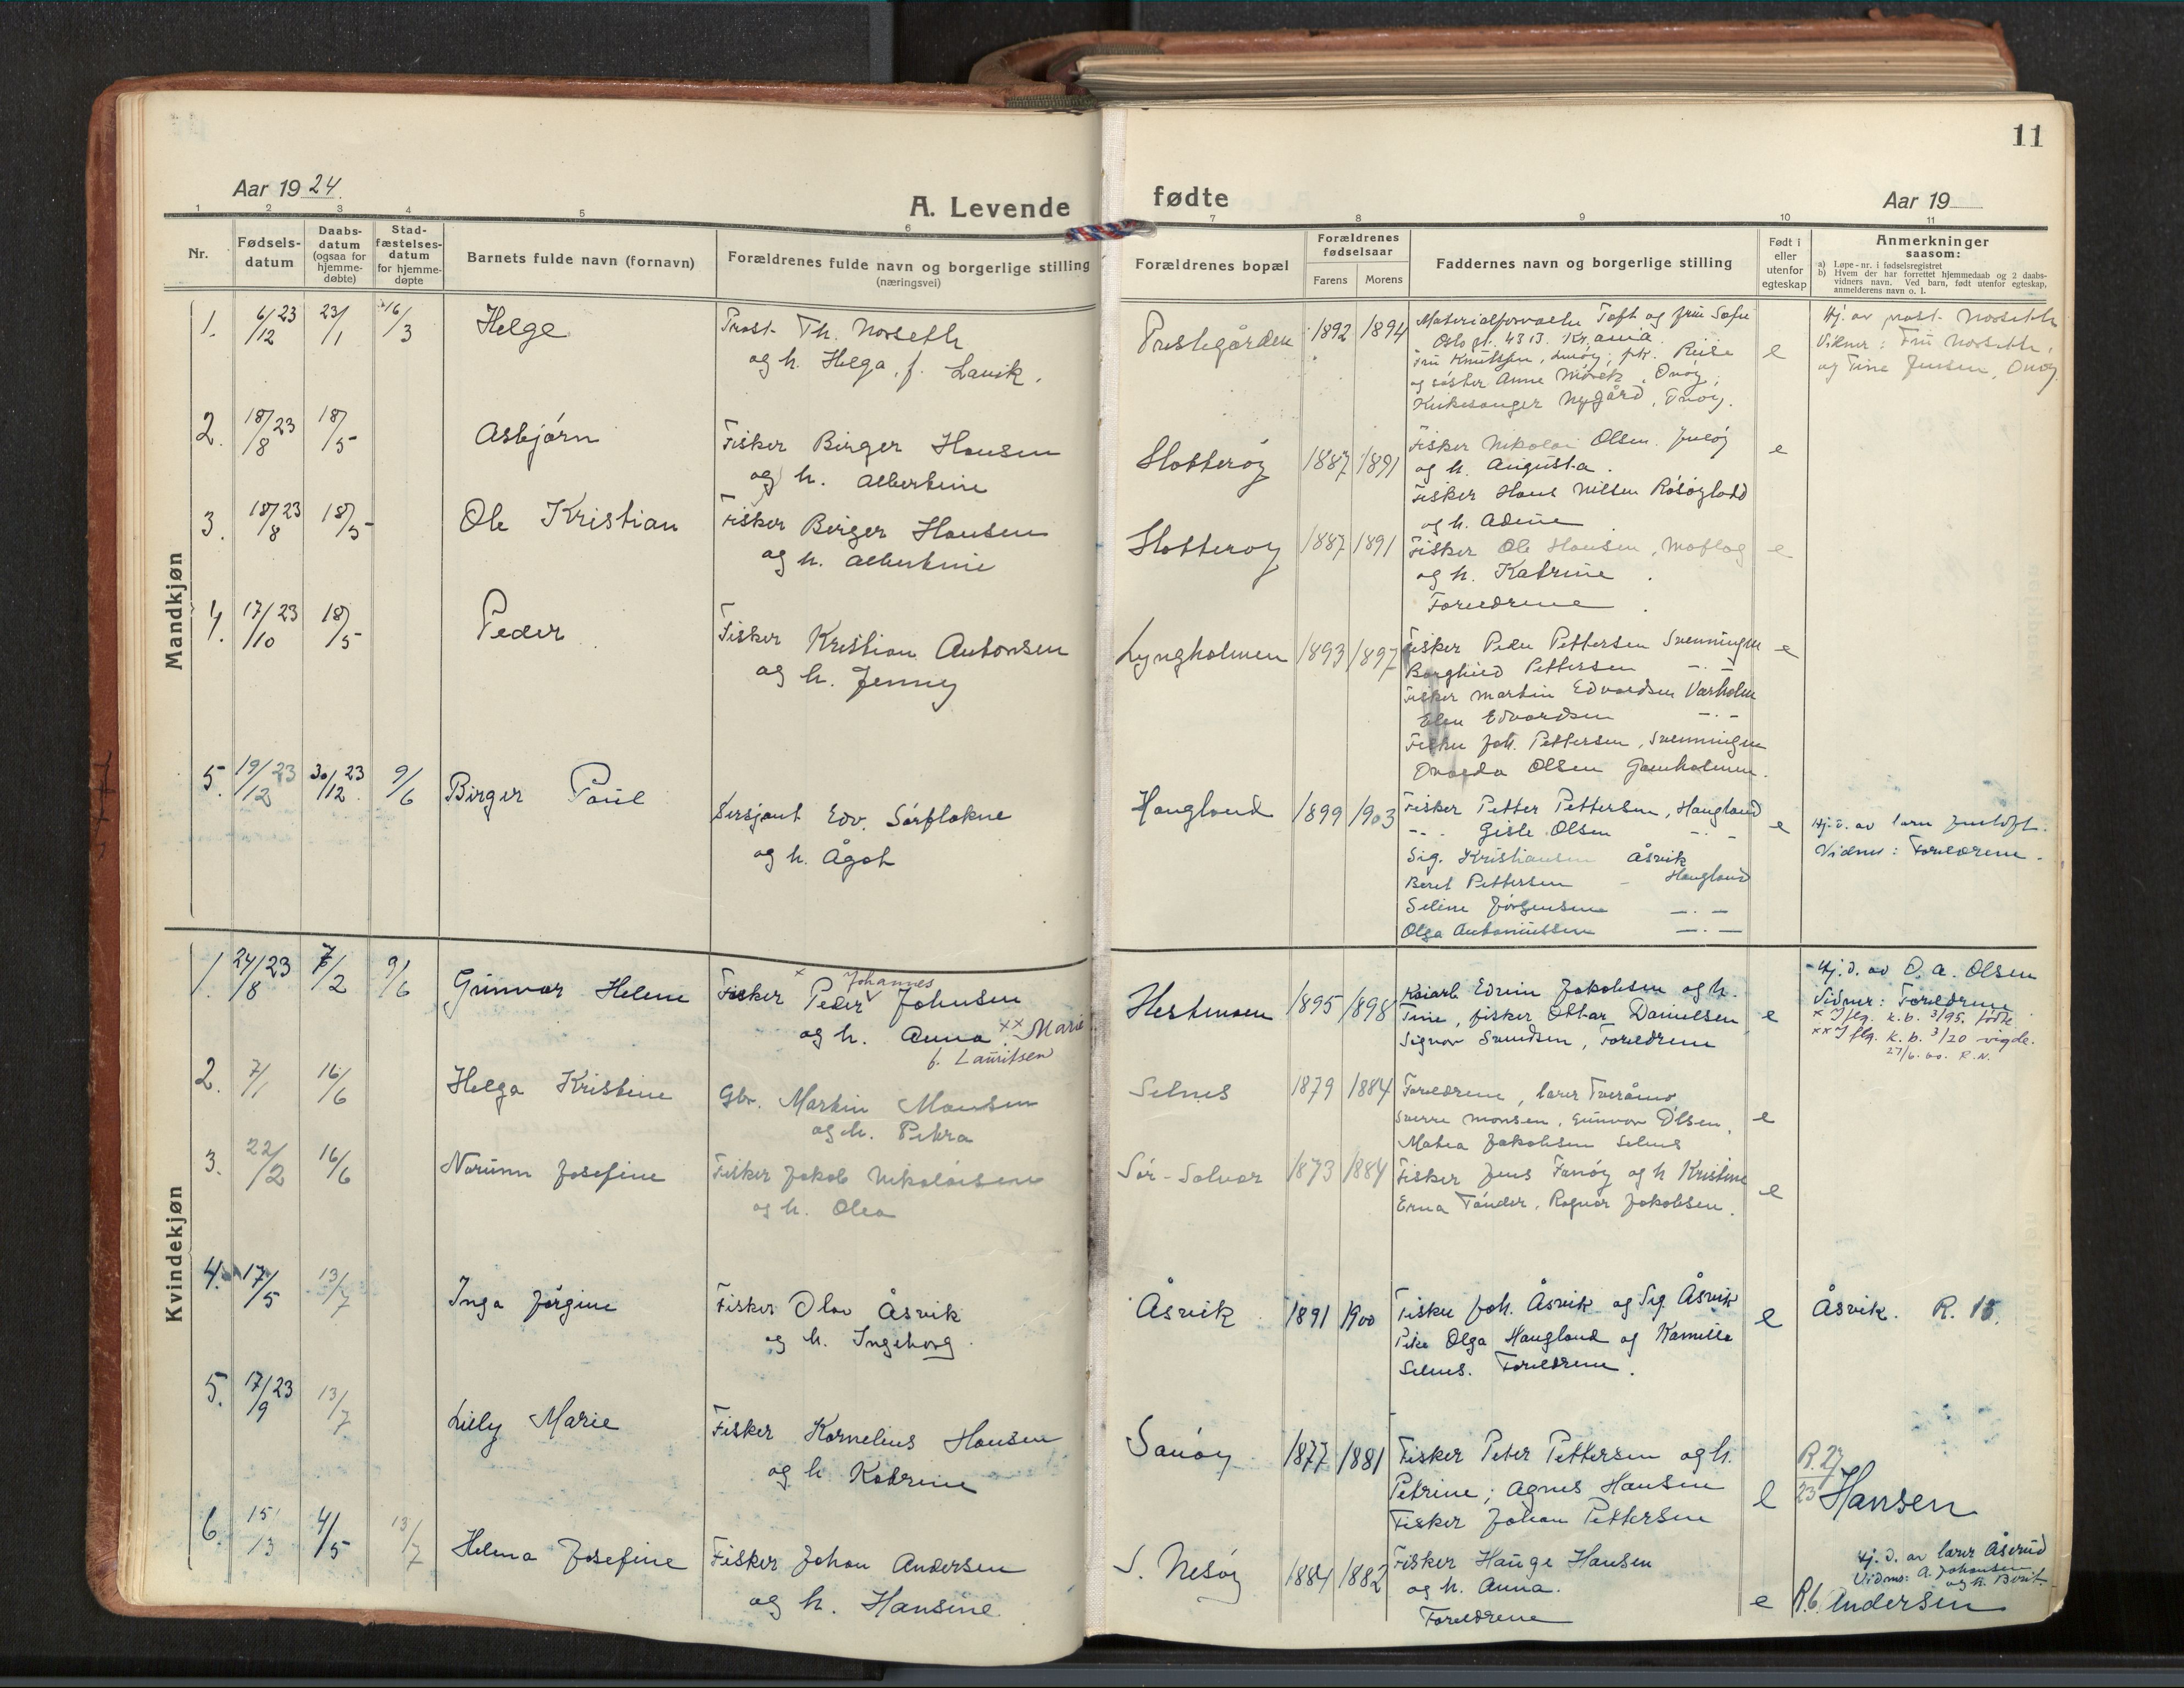 11
Aar 1924.
A. Levende
fødte
Aar 19
1 2 3 4 5 6 7 8 9 10 11
Nr.
Fødsels-
datum
Daabs-
datum
(ogsaa for
hjemme-
døbte)
Stad-
fæstelses-
datum
for hjemme-
døpte
Barnets fulde navn (fornavn)
Forældrenes fulde navn og borgerlige stilling
(næringsvei)
Forældrenes bopæl
Forældrenes
fødselsaar
Farens Morens
Faddernes navn og borgerlige stilling
Født i
eller
utenfor
egteskap
Anmerkninger
saasom:
a) Løpe-nr. i fødselsregistret
b) Hvem der har forrettet hjemmedaab og 2 daabs-
vidners navn. Ved barn, født utenfor egteskap,
anmelderens navn o. l.
Mandkjøn
1. 6/12 23 23/1 16/3 Helge
Prost Th. Norseth
og h. Helga, f. Lavik.
Prestegården 1892 1894
Materialforvalter Toft og frue Sofie
Oslo gt. 43 B. Kr.ania.
og søster Anne
Kirkesanger Nygård
e
Hj. av prost Norseth
Vidner: Fru Norseth,
og Tine Jensen, Onøy
2. 18/8 23 18/5 Asbjørn
Fisker Birger Hansen
og h. Albertine
Slotterøy 1887 1891
Fisker Nikolai Olsen
og h. Augusta.
Fisker Hans Nilsen
og h. Adene
e
3. 18/8 23 18/5 Ole Kristian
Fisker Birger Hansen
og h. Albertine
Slotterøy 1887 1891
Fisker Ole Hansen, Moflag
og h. Katrine.
Foreldrene.
e
4. 17/10 23 18/5 Peder
Fisker Kristian Antonsen
og h. Jenny
Lyngholmen 1893 1897
Fisker Peder Pettersen Svenningen
Borghild Pettersen -.-
Fisker Martin Edvardsen Varholm
Elen Edvardsen -.-
Fisker Joh. Pettersen, Svenningen
Olsen
e
5. 19/12 23 30/12 23 9/6 Birger Paul
Sersjant Edv. Sørflakne
og h. Ågot
Haugland 1899 1903
Fisker Petter Pettersen, Haugland
-.- Gisle Olsen -.-
Sig. Kristiansen Åsvik
Beret Pettersen - Haugland
Seline Jørgensen -.-
Olga Antoniussen -.-
e
Hj. d. av lærer
Vidner: Foreldrene.
Kvindekjøn
1. 24/8 23 7/2 9/6 Gunvor Helene
Johannes
Fisker × Peder √ Johnsen
og h. Anna ×× Marie
f. Lauritsen
Hestmoen 1895 1898
Kaiarb. Edvin Jakobsen og h.
Tine, fisker Ottar Danielsen
Signor Svendsen, Foreldrene
e
Hj. d. av O. A. Olsen
Vidner: Foreldrene
× Iflg. k.b. 3/95, fødte
×× Iflg. k.b. 3/20 vigde.
27/6.60. R.N.
2. 7/1 16/6 Helga Kristine
Gbr. Martin Monsen
og h. Petra
Selnes 1879 1884
Foreldrene, lærer Tveråmo
Sverre Monsen, Gunvor Olsen,
Matea Jakobsen Selnes
e
3. 22/2 16/6 Norunn Josefine
Fisker Jakob Nikolaisen
og h. Olea
Sør-Solvær 1873 1884
Fisker Jens Fanøy og h Kristine
Erna Tønder, Ragnar Jakobsen.
e
4. 17/5 13/7 Inga Jørgine
Fisker Olav Åsvik
og h. Ingeborg.
Åsvik 1891 1900
Fisker Joh. Åsvik og Sig. Åsvik
Pike Olga Haugland og Kamilla
Selnes. Foreldrene.
e
Åsvik. R. 15.
5. 17/9 23 13/7 Lilly Marie
Fisker Kornelius Hansen
og h. Katrine
Sanøy 1877 1881
Fisker Peter Pettersen og h.
Petrine; Agnes Hansen
Fisker Johan Pettersen
e
R. 27/23 Hansen
6. 15/13 4/5 13/7 Helena Josefine
Fisker Johan Andersen
og h. Hansine
S. Nesøy 1884 1882
Fisker Hauge Hansen
og h. Anna.
Foreldrene
e
Hj. d. av lærer Åserud
Vidner: A. Johansen
og h. Berit.
R. 6. Andersen